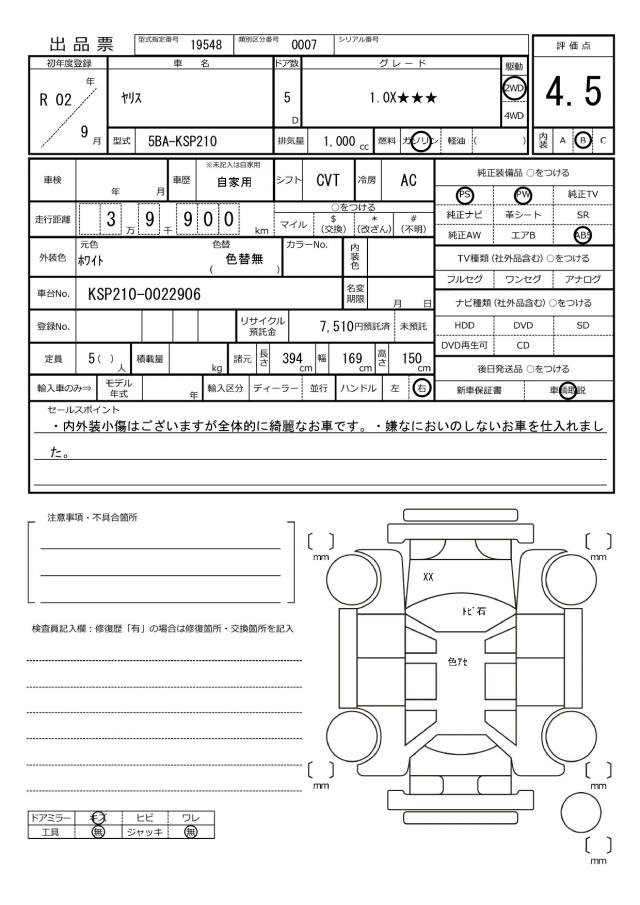 出品票 型式指定番号 19548 類別区分番号 0007 シリアル番号
評価点
初年度登録 車名 ドア数 グレード 駆動
R 02 年 ヤリス 5 D 1.0X★★★ 2WD 4.5
4WD
9 月 型式 5BA-KSP210 排気量 1,000 cc 燃料 ガソリン 軽油 ( ) 内装 A B C
車検 年 月 車歴 ※未記入は自家用 自家用 シフト CVT 冷房 AC
純正装備品 ○をつける
PS PW 純正TV
純正ナビ 革シート SR
純正AW エアB ABS
走行距離 3 万 9 千 9 0 0 km
○をつける
マイル $ (交換) * (改ざん) # (不明)
外装色 元色 ホワイト 色替 ( 色替無 ) カラーNo. 内装色
TV種類 (社外品含む) ○をつける
フルセグ ワンセグ アナログ
車台No. KSP210-0022906 名変期限 月 日
ナビ種類 (社外品含む) ○をつける
HDD DVD SD
DVD再生可 CD
登録No. リサイクル預託金 7,510円預託済 未預託
定員 5 ( ) 人 積載量 kg 諸元 長さ 394 cm 幅 169 cm 高さ 150 cm
後日発送品 ○をつける
新車保証書 車輌取説
輸入車のみ⇒ モデル年式 年 輸入区分 ディーラー 並行 ハンドル 左 右
セールスポイント
・内外装小傷はございますが全体的に綺麗なお車です。・嫌なにおいのしないお車を仕入れまし
た。
注意事項・不具合箇所
mm
mm
XX
トビ石
検査員記入欄：修復歴「有」の場合は修復箇所・交換箇所を記入
色アセ
mm
mm
ドアミラー キズ ヒビ ワレ
工具 無 ジャッキ 無
mm